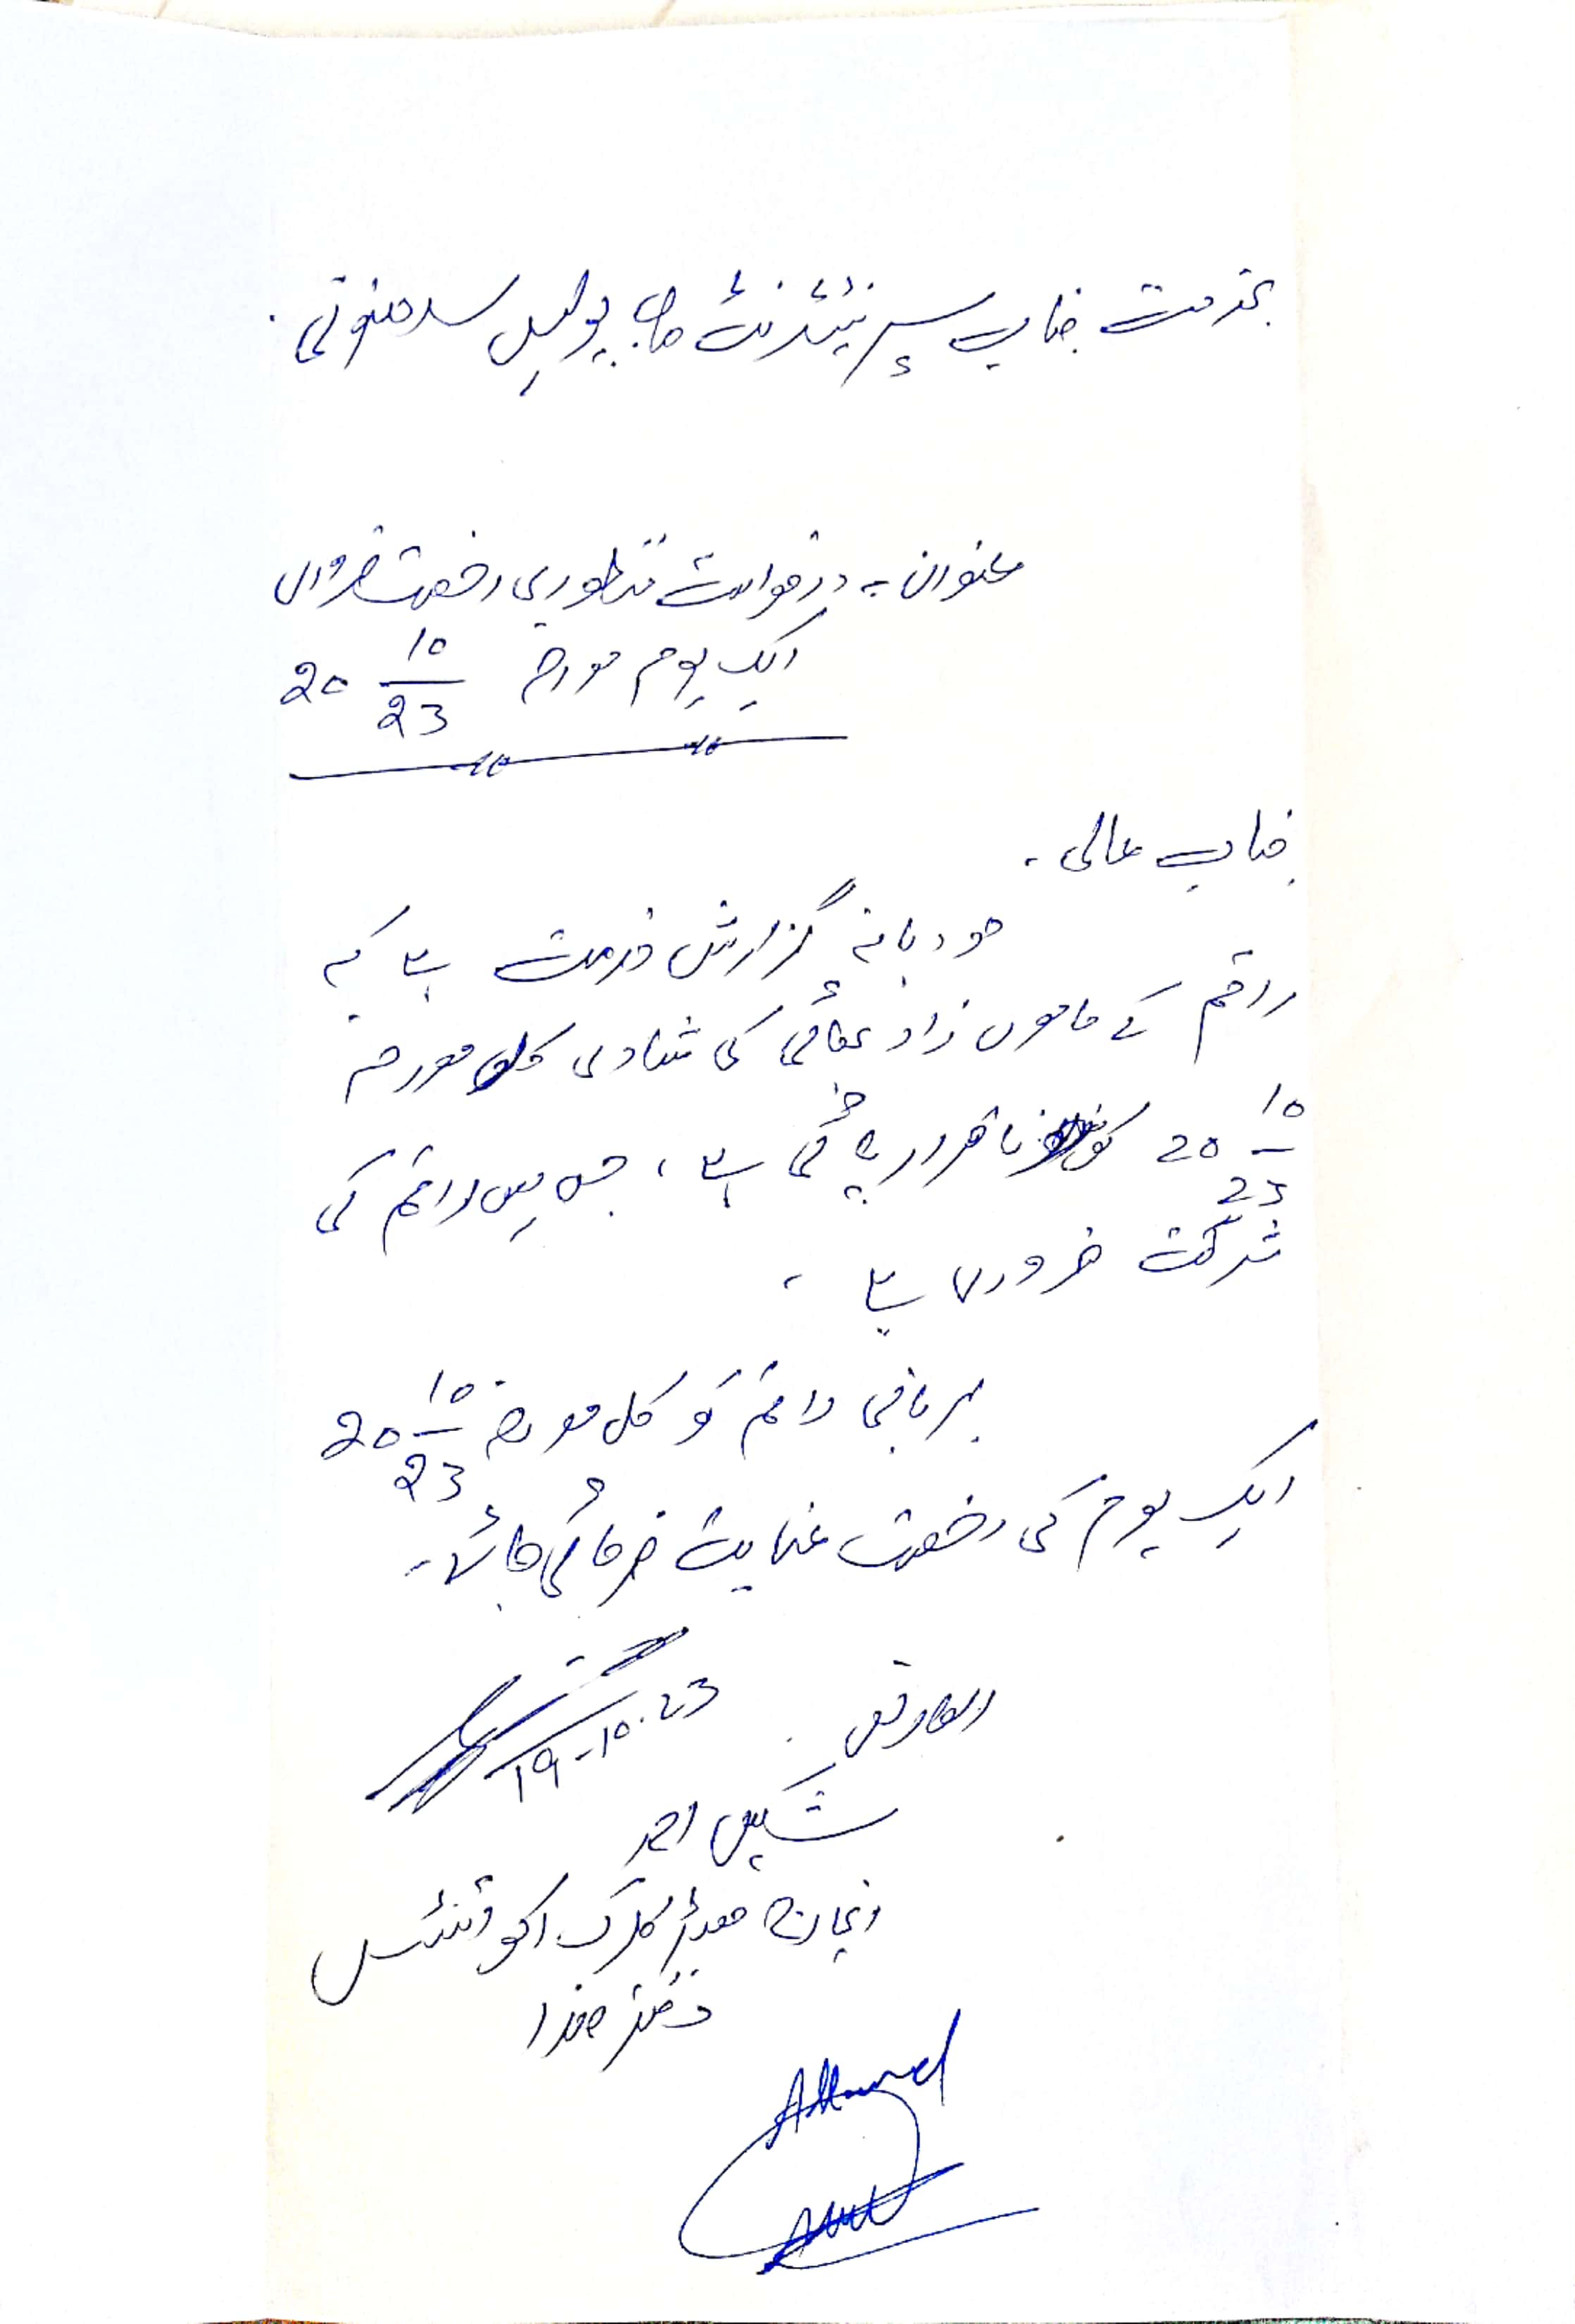 بخدمت جناب سپرنٹنڈنٹ صاحب پولیس سدھنوتی۔
عنوان :۔ درخواست منظوری رخصت
ایک یوم مورخہ 20 10/23
جناب عالی۔
مودبانہ گزارش خدمت ہے کہ
راقم کے ماموں زاد بھائی کی شادی کل مورخہ
20 10/23 کو ہونا قرار پائی ہے، جس میں راقم کی
شرکت ضروری ہے۔
مہربانی راقم کو کل مورخہ 20 10/23
ایک یوم کی رخصت عنایت فرمائی جائے۔
العارض
19-10-23
شکیل احمد
انچارج ہیڈ کلرک اکونٹنٹس
دفتر ھذا